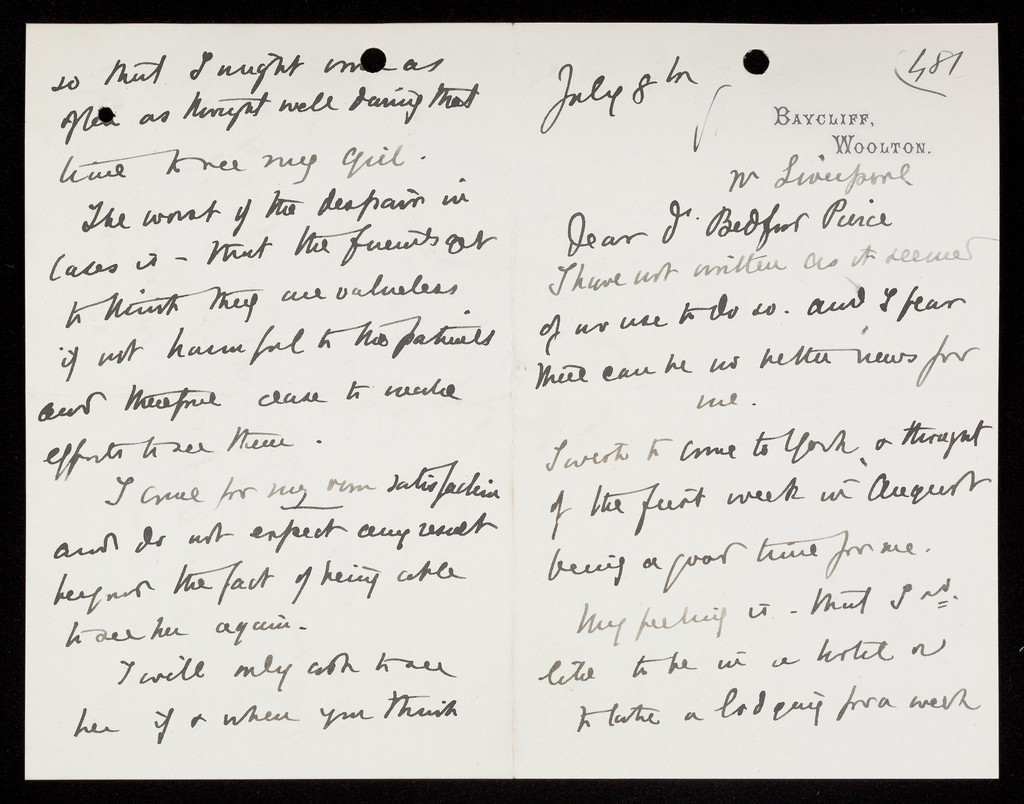 481
July 8th
BAYCLIFF,
WOOLTON.
nr Liverpool
Dear Dr. Bedford Pierce
I have not written as it seemed
of no use to do so. and I fear
there can be no better news for
me.
I want to come to York, & thought
of the first week in August
being a good time for me.
My feeling is - that I shd.
like to be in a hotel or
to take a lodging for a week
so that I might come as
often as thought well during that
time to see my girl.
The worst of the despair in
cases is - that the friends get
to think they are valueless
if not harmful to the patients
and therefore cease to make
efforts to see them.
I come for my own satisfaction
and do not expect any result
beyond the fact of being able
to see her again.
I will only ask to see
her if & when you think